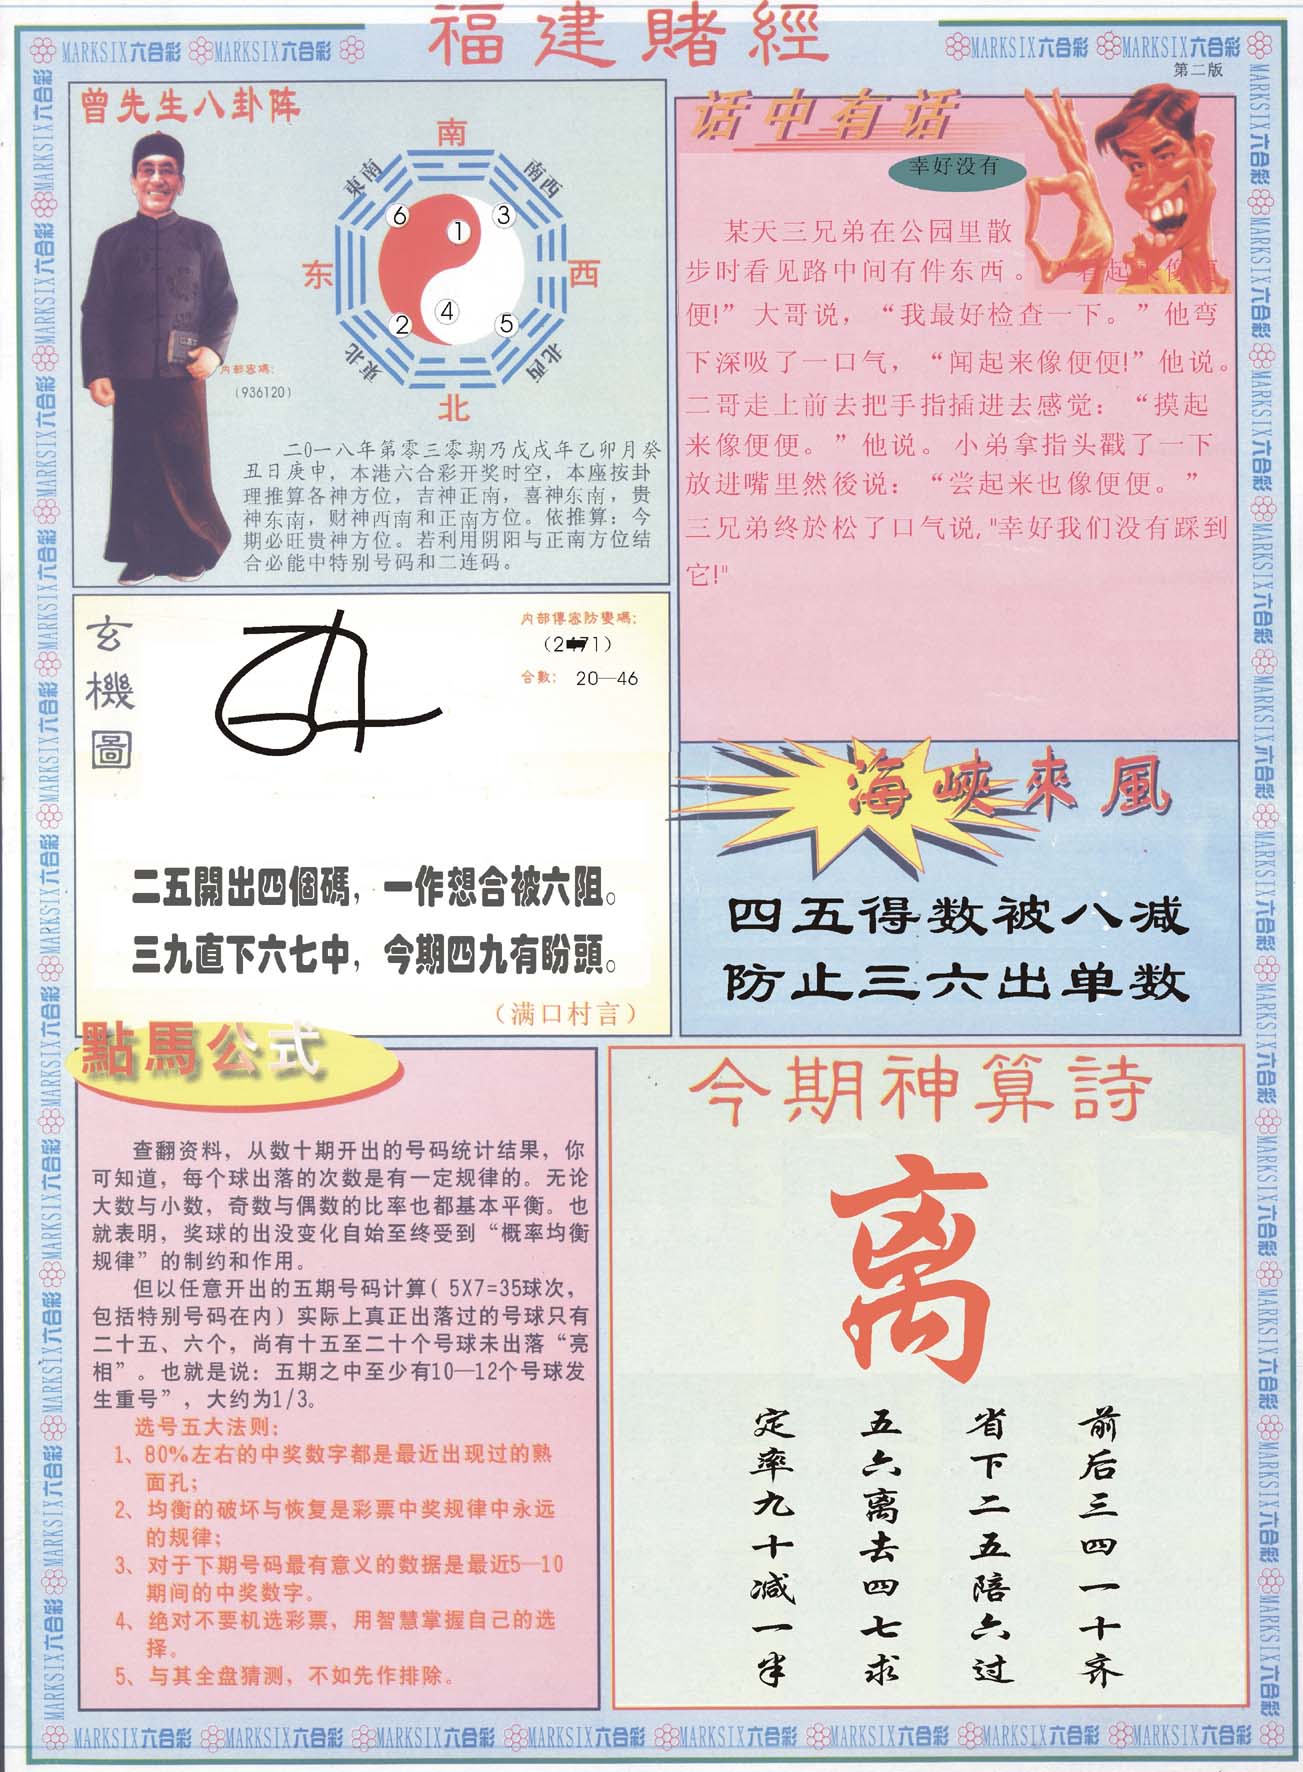 福建賭經
MARKSIX六合彩 MARKSIX六合彩
MARKSIX六合彩 MARKSIX六合彩
第二版
曾先生八卦阵
南
東南
南西
6
1
3
东
西
2
4
5
東北
北西
北
内部密碼:
(936120)
二0一八年第零三零期乃戊戌年乙卯月癸
丑日庚申，本港六合彩开奖时空，本座按卦
理推算各神方位，吉神正南，喜神东南，贵
神东南，财神西南和正南方位。依推算：今
期必旺贵神方位。若利用阴阳与正南方位结
合必能中特别号码和二连码。
话中有话
幸好没有
某天三兄弟在公园里散
步时看见路中间有件东西。“看起来像便
便!”大哥说，“我最好检查一下。”他弯
下深吸了一口气，“闻起来像便便!”他说。
二哥走上前去把手指插进去感觉：“摸起
来像便便。”他说。小弟拿指头戳了一下
放进嘴里然後说：“尝起来也像便便。”
三兄弟终於松了口气说,"幸好我们没有踩到
它!"
玄機圖
内部傳密防變碼:
合數: 20—46
二五開出四個碼，一作想合被六阻。
三九直下六七中，今期四九有盼頭。
（满口村言）
海峽來風
四五得数被八减
防止三六出单数
點馬公式
查翻资料，从数十期开出的号码统计结果，你
可知道，每个球出落的次数是有一定规律的。无论
大数与小数，奇数与偶数的比率也都基本平衡。也
就表明，奖球的出没变化自始至终受到“概率均衡
规律”的制约和作用。
但以任意开出的五期号码计算( 5X7=35球次，
包括特别号码在内）实际上真正出落过的号球只有
二十五、六个，尚有十五至二十个号球未出落“亮
相”。也就是说：五期之中至少有10—12个号球发
生重号”，大约为1/3。
选号五大法则:
1、80%左右的中奖数字都是最近出现过的熟
面孔;
2、均衡的破坏与恢复是彩票中奖规律中永远
的规律;
3、对于下期号码最有意义的数据是最近5—10
期间的中奖数字。
4、绝对不要机选彩票，用智慧掌握自己的选
择。
5、与其全盘猜测，不如先作排除。
今期神算詩
离
前后三四一十齐
省下二五陪六过
五六离去四七求
定率九十减一半
MARKSIX六合彩 MARKSIX六合彩 MARKSIX六合彩 MARKSIX六合彩 MARKSIX六合彩 MARKSIX六合彩 MARKSIX六合彩 MARKSIX六合彩